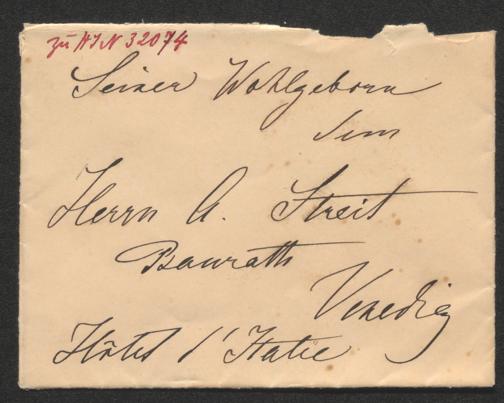 zu HIN 32074
Seiner Wohlgeborn
dem
Herrn A. Streit
Baurath
Venedig
Hôtel d'Italie